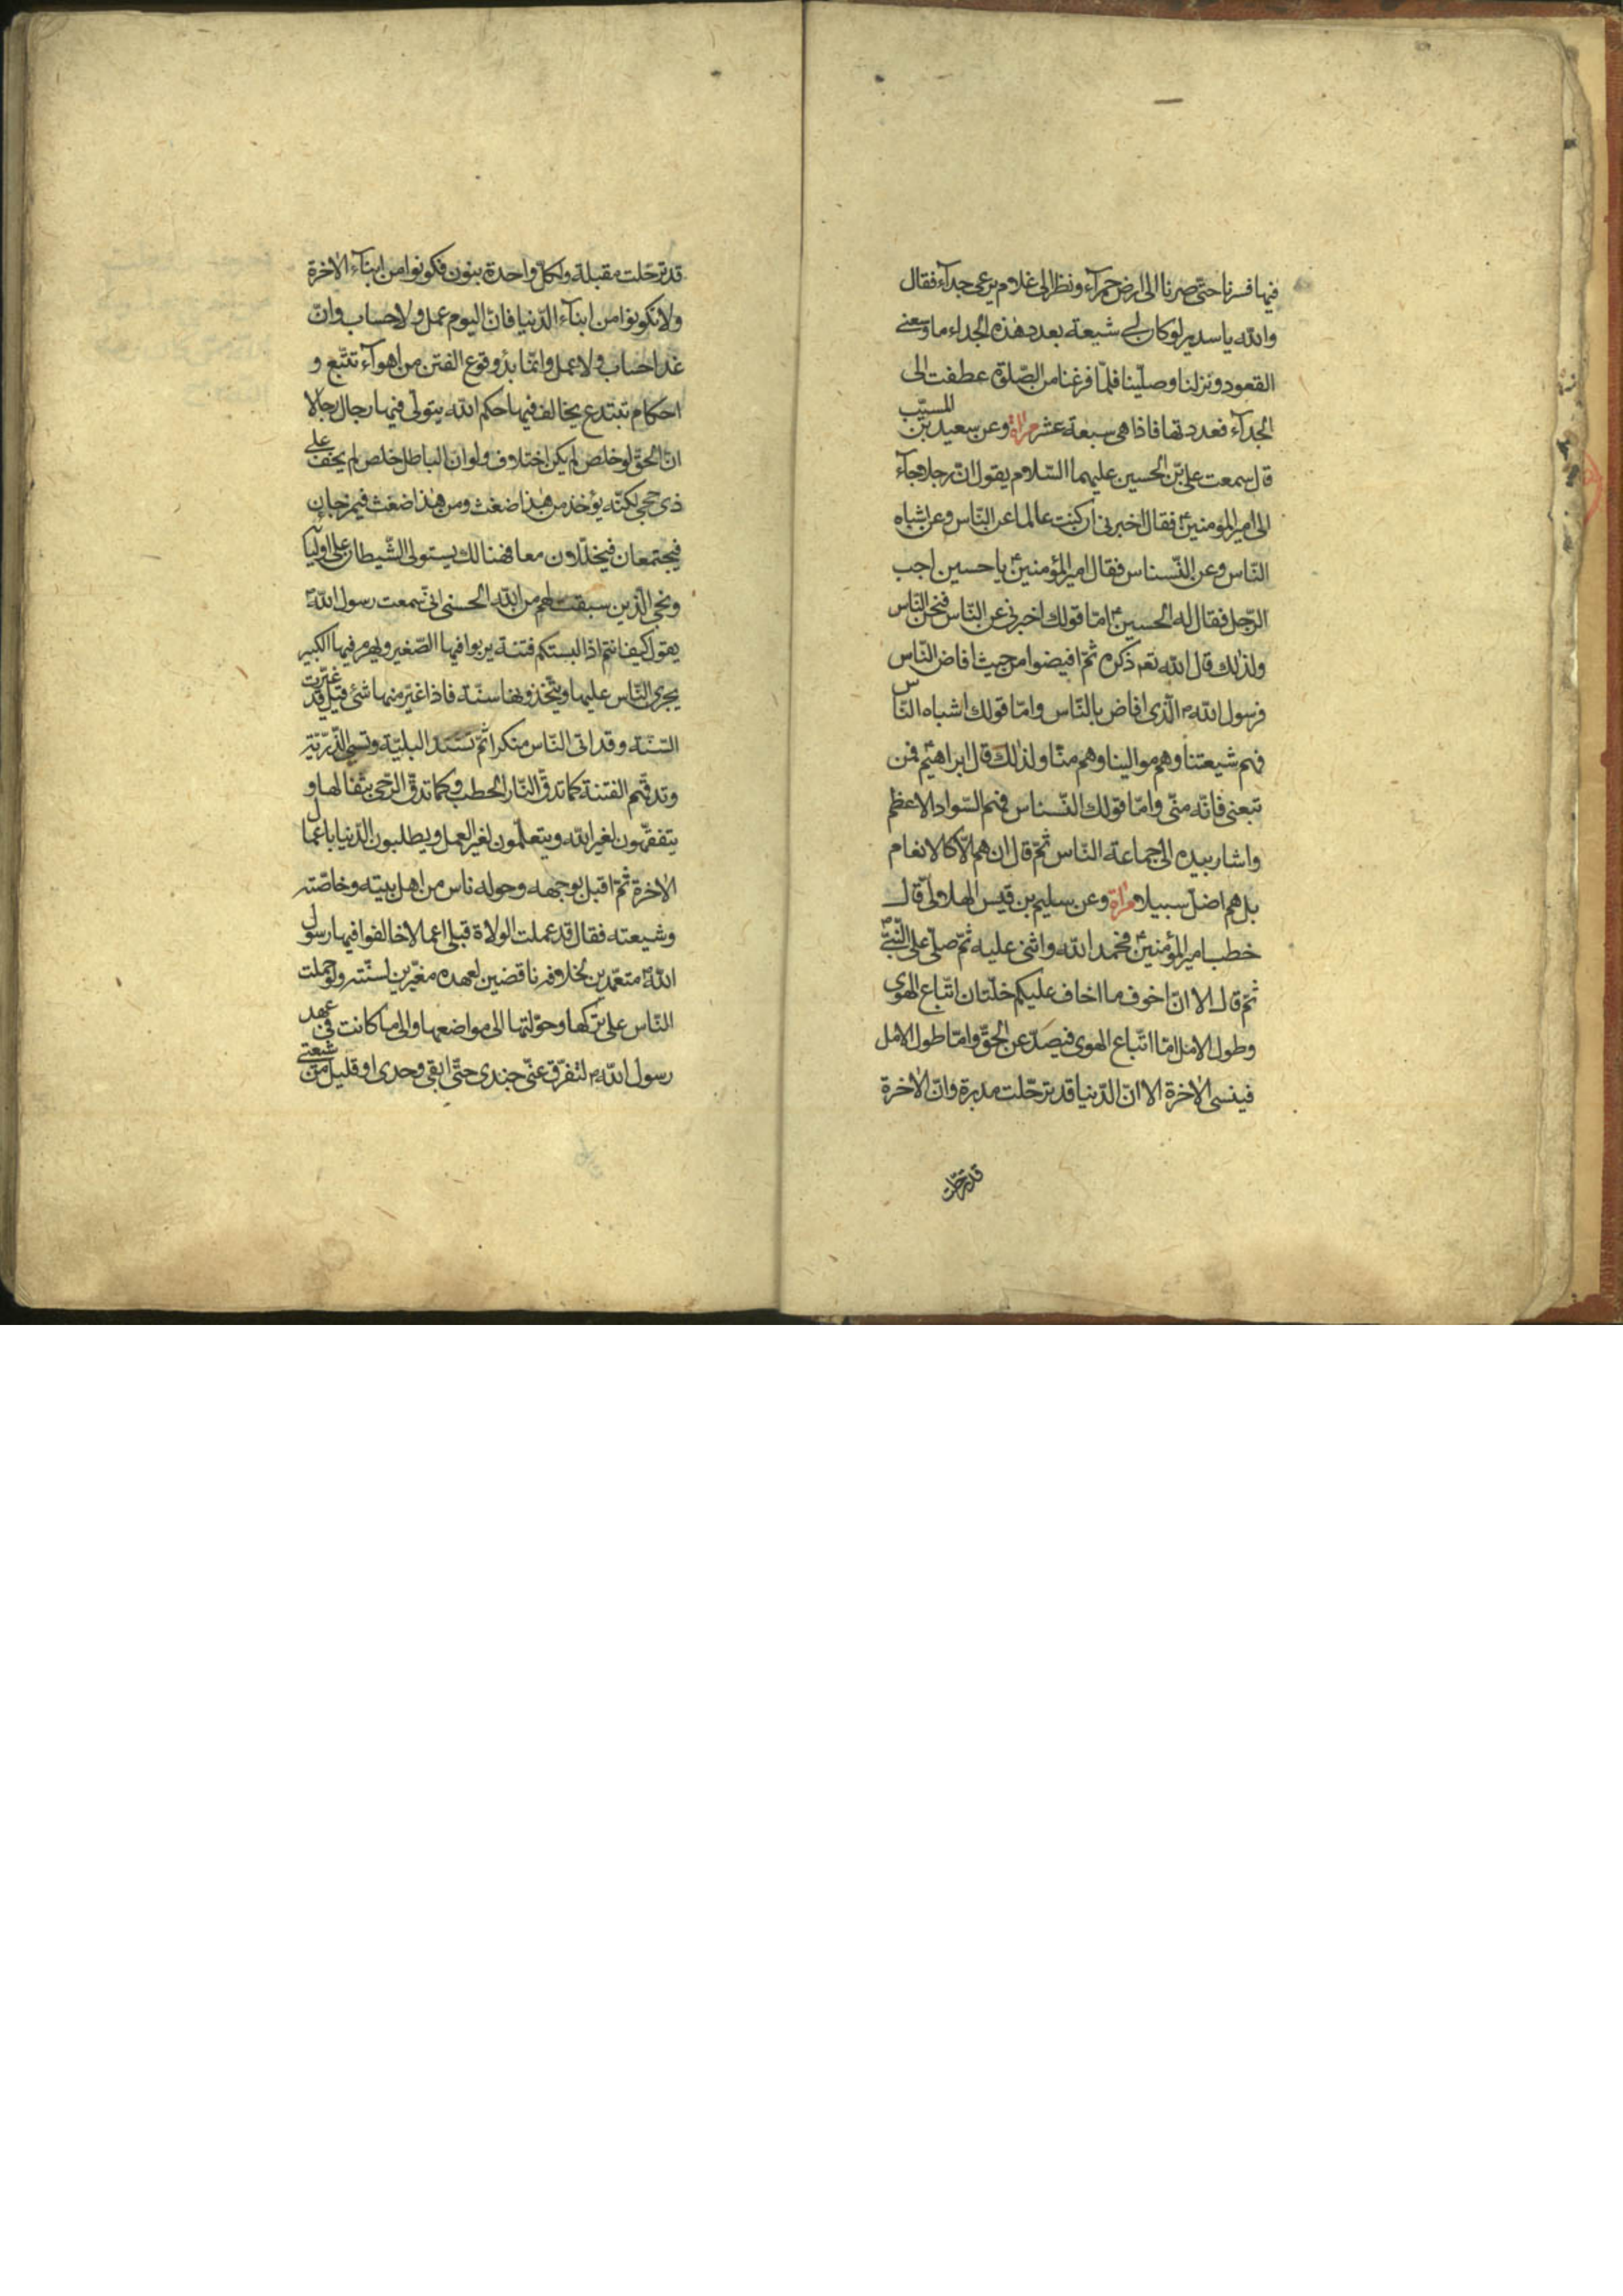 فيها فسرنا حتى صرنا الى ارض حمرآء ونظر الى غلام يرعى جدآء فقال
والله يا سدير لو كان لى شيعة بعدد هذه الجداء ما وسعنى
القعود ونزلنا وصلّينا فلمّا فرغنا من الصّلوة عطفت الى
الجدآء فعددتها فاذا هى سبعة عشر مرآة وعن سعيد بن المسيّب
قال سمعت علىّ بن الحسين عليهما السّلام يقول انّ رجلا جآء
الى امير المؤمنينؑ فقال اخبرنى ان كنت عالما عن النّاس وعن اشباه
النّاس وعن النّسناس فقال امير المؤمنينؑ يا حسين اجب
الرّجل فقال له الحسينؑ امّا قولك اخبرنى عن النّاس فنحن النّاس
ولذلك قال الله تعه ذكره ثمّ افيضوا من حيث افاض النّاس
فرسول اللهم الّذى افاض بالنّاس وامّا قولك اشباه النّاس
فهم شيعتنا وهم موالينا وهم منّا ولذلك قال ابراهيمؑ فمن
تبعنى فانّه منّى وامّا قولك النّسناس فهم السّواد الاعظم
واشار بيده الى جماعة النّاس ثمّ قال ان هم الّا كالانعام
بل هم اضلّ سبيلا مرآة وعن سليم بن قيس الهلالىّ قال
خطب امير المؤمنينؑ فحمد الله واثنى عليه ثمّ صلّى على النّبىّ ص
ثمّ قال الا انّ اخوف ما اخاف عليكم خلّتان اتّباع الهوى
وطول الامل امّا اتّباع الهوى فيصدّ عن الحقّ وامّا طول الامل
فينسى الاخرة الا انّ الدّنيا قد ترحّلت مدبرة وانّ الاخرة
قد ترحّلت
قد ترحّلت مقبلة ولكلّ واحدة بنون فكونوا من ابنآء الاخرة
ولا تكونوا من ابنآء الدّنيا فانّ اليوم عمل ولا حساب وانّ
غدا حساب ولا عمل وانّما بدؤ وقوع الفتن من اهوآء تتّبع و
احكام تبتدع يخالف فيها حكم الله يتولّى فيها رجال رجالا
انّ الحقّ لو خلص لم يكن اختلاف ولو انّ الباطل خلص لم يخف على
ذى حجى لكنّه يؤخذ من هذا ضغث ومن هذا ضغث فيمزجان
فيجتمعان فيجلّلان معا فهنالك يستولى الشّيطان على اوليائه
ونجى الّذين سبقت لهم من الله الحسنى انّى سمعت رسول اللهص
يقول كيف انتم اذا لبستكم فتنة يربوا فيها الصّغير ويهرم فيها الكبير
يجرى النّاس عليها ويتّخذونها سنّة فاذا غيّر منها شئ قيل قد غيّرت
السّنّة وقد اتى النّاس منكرا ثمّ تشتد البليّة وتسبى الذّرّيّة
وتدقّهم الفتنة كما تدقّ النّار الحطب وكما تدقّ الرّحى بثفالها و
يتفقّهون لغير الله ويتعلّمون لغير العمل ويطلبون الدّنيا باعمال
الاخرة ثمّ اقبل بوجهه وحوله ناس من اهل بيته وخاصّته
وشيعته فقال قد عملت الولاة قبلى اعمالا خالفوا فيها رسول
اللهص متعمّدين لخلافه ناقضين لعهده مغيّرين لسنّته ولو حملت
النّاس على تركها وحوّلتها الى مواضعها والى ما كانت فى عهد
رسول اللهص لتفرّق عنّى جندى حتّى ابقى وحدى او قليل من شيعتى